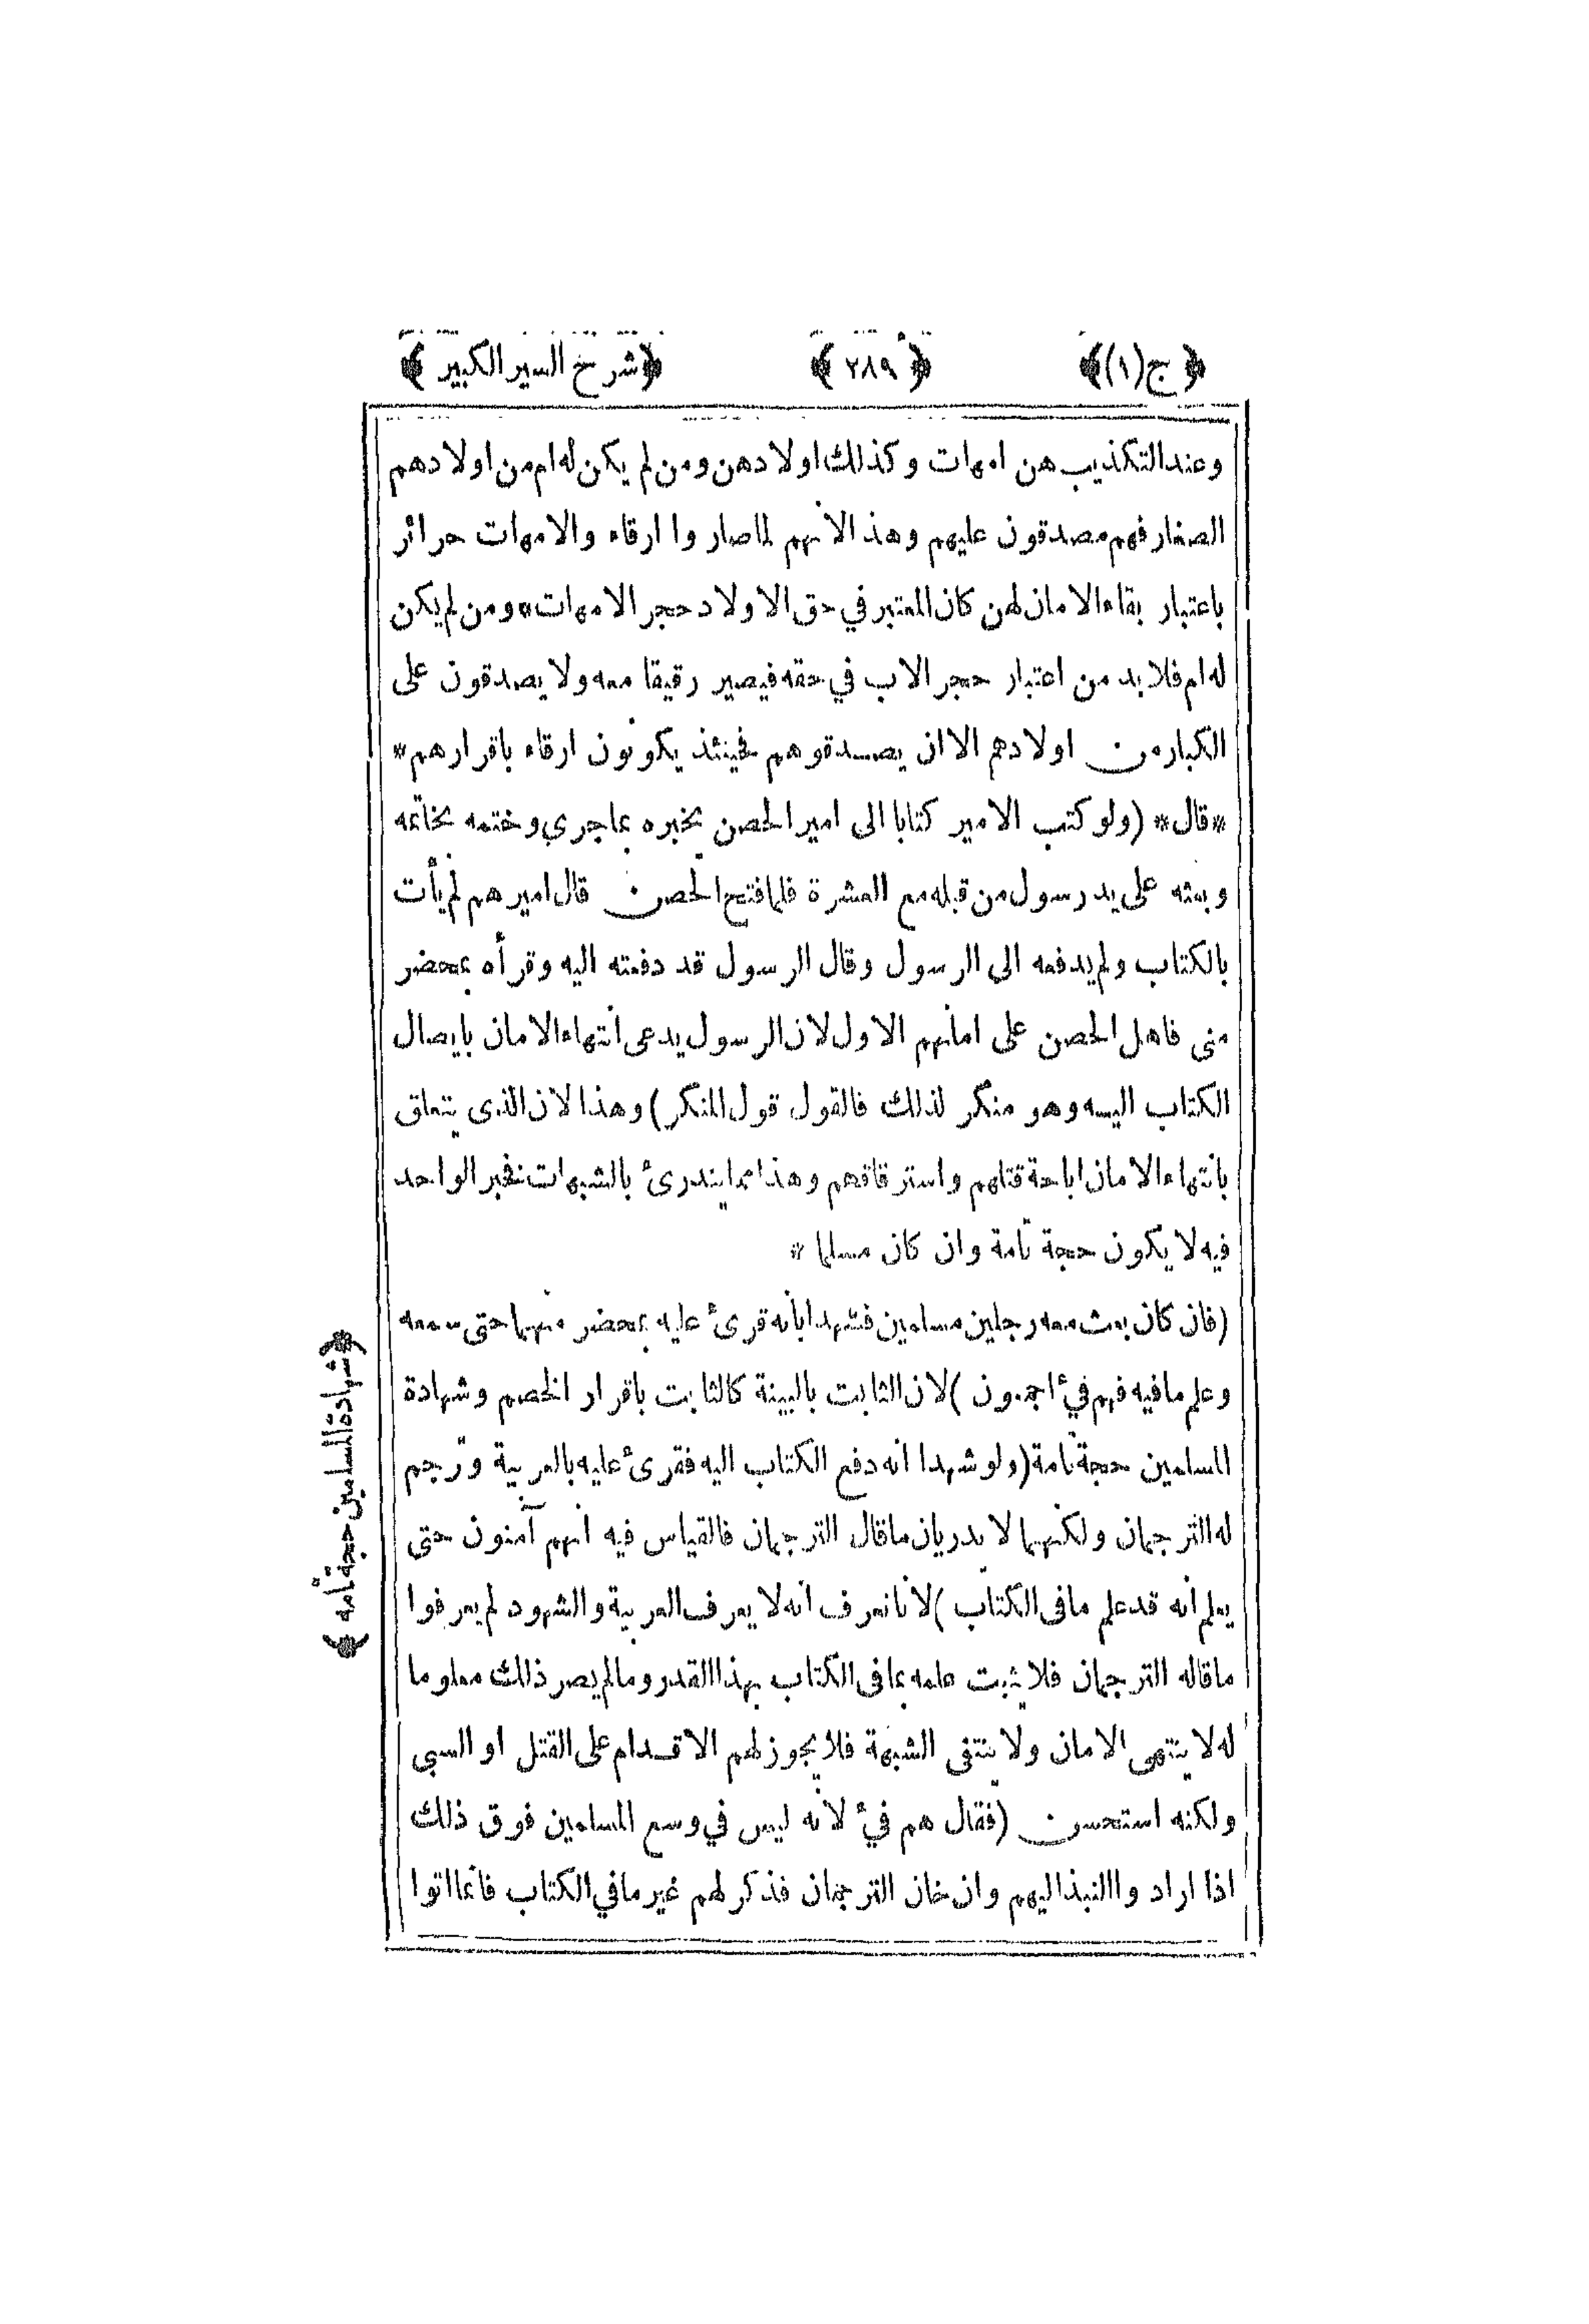 ﴿ ج(١)﴾ ﴿ ٢٨٩ ﴾ ﴿شرح السير الكبير ﴾
وعند التكذيب هن امهات وكذلك اولادهن ومن لم يكن له ام من اولادهم
الصغار فهم مصدقون عليهم وهذا لانهم لما صاروا ارقاء والامهات حرائر
باعتبار بقاء الامان لهن كان المعتبر في حق الاولاد حجر الامهات * ومن لم يكن
له ام فلا بد من اعتبار حجر الاب في حقه فيصير رقيقا معه ولا يصدقون على
الكبار من اولادهم الا ان يصدقوهم فحينئذ يكونون ارقاء باقرارهم *
* قال * (ولو كتب الامير كتابا الى امير الحصن يخبره بما جرى وختمه بخاتمه
وبعثه على يد رسول من قبله مع العشرة فلما فتح الحصن قال اميرهم لم يأت
بالكتاب ولم يدفعه الى الرسول وقال الرسول قد دفعته اليه وقرأه بمحضر
منى فاهل الحصن على امانهم الاول لان الرسول يدعى انتهاء الامان بايصال
الكتاب اليه وهو منكر لذلك فالقول قول المنكر) وهذا لان الذى يتعلق
بانتهاء الامان اباحة قتلهم واسترقاقهم وهذا مما يندرئ بالشبهات فخبر الواحد
فيه لا يكون حجة تامة وان كان مسلما *
(فان كان بعث معه رجلين مسلمين فشهدا بأنه قرئ عليه بمحضر منهما حتى سمعه
وعلم ما فيه فهم فيء اجمعون )لان الثابت بالبينة كالثابت باقرار الخصم وشهادة
المسلمين حجة تامة(ولو شهدا انه دفع الكتاب اليه فقرئ عليه بالعربية وترجم
له الترجمان ولكنهما لا يدريان ما قال الترجمان فالقياس فيه انهم آمنون حتى
يعلم أنه قد علم ما فى الكتاب )لانا نعرف انه لا يعرف العربية والشهود لم يعرفوا
ما قاله الترجمان فلا يثبت علمه بما فى الكتاب بهذا القدر وما لم يصر ذلك معلوما
له لا ينتهى الامان ولا ينتفى الشبهة فلا يجوز لهم الاقدام على القتل او السبى
ولكنه استحسن (فقال هم فيء لانه ليس في وسع المسلمين فوق ذلك
اذا ارادوا النبذ اليهم وان خان الترجمان فذكر لهم غير ما في الكتاب فانما اتوا
﴿شهادة المسلمين حجة تامه ﴾